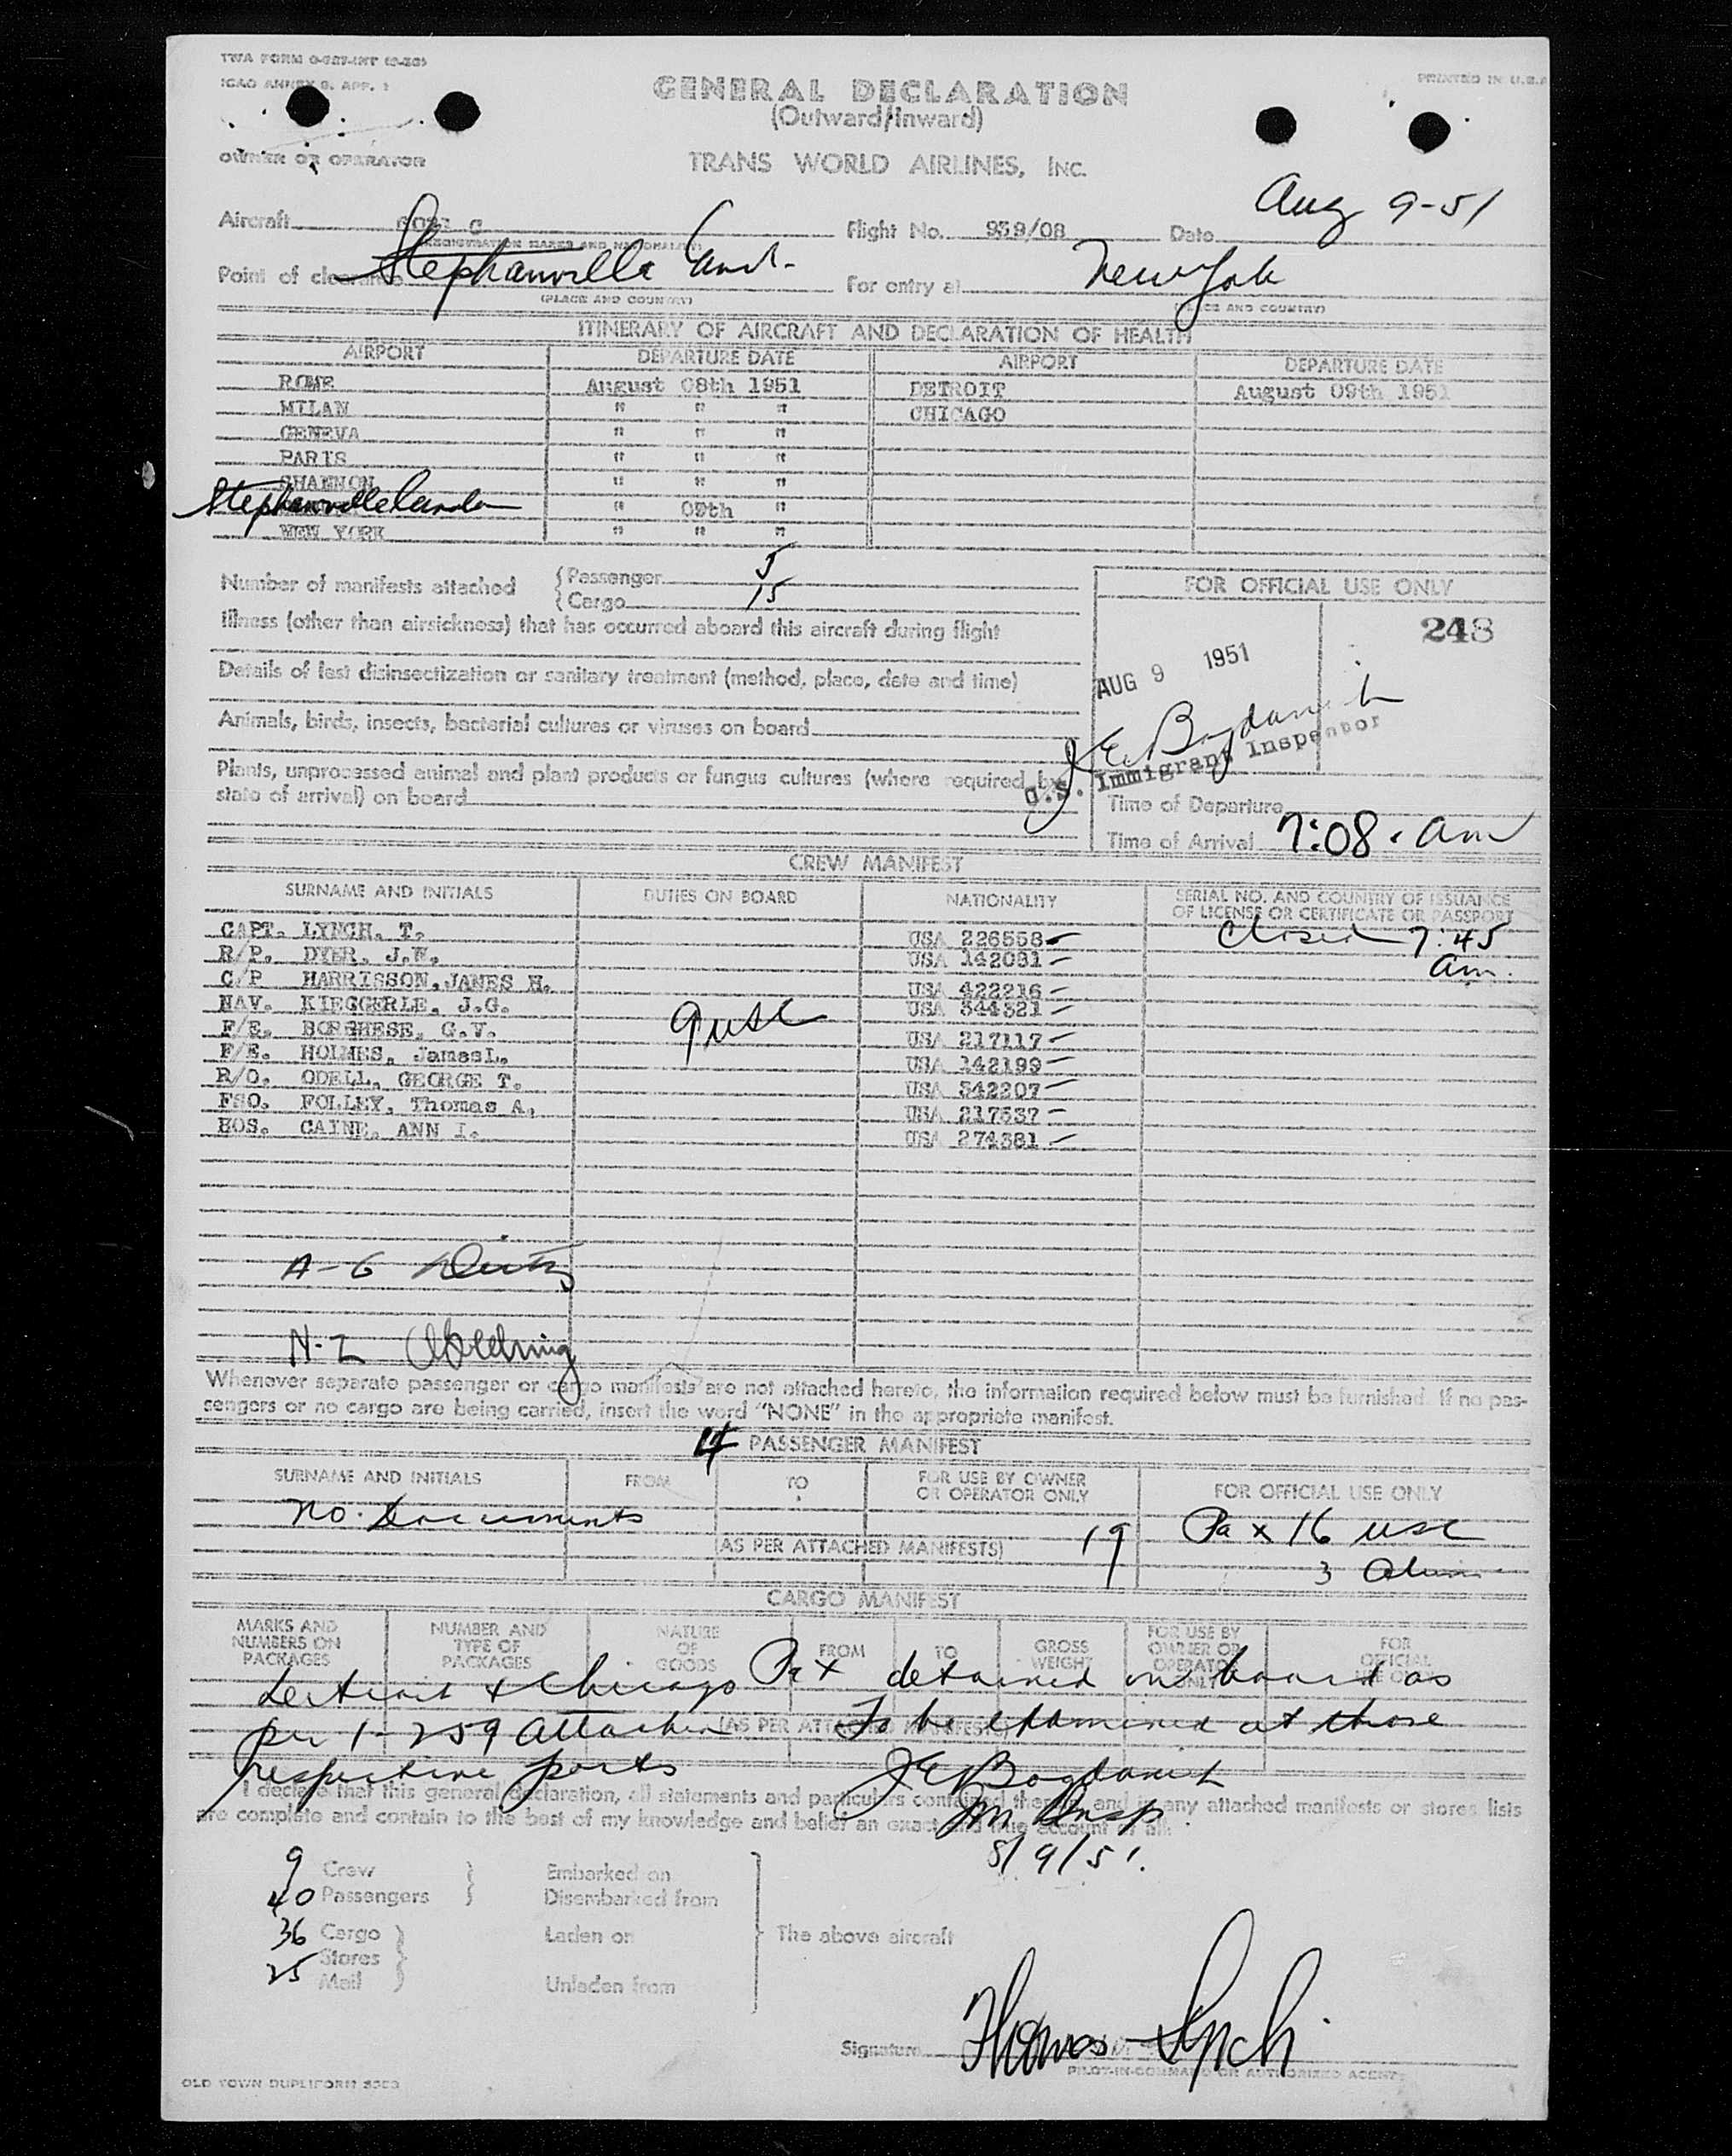 TWA FORM O-727-INT
PRINTED IN U.S.A
ICAO ANNEX 9, APP. 1
GENERAL DECLARATION
(Outward/Inward)
OWNER OR OPERATOR
TRANS WORLD AIRLINES, INC.
Aircraft C Flight No. 959/08 Date Aug 9-51
(REGISTRATION MARKS AND NATIONALITY)
Point of clearance Stephanville Cand. For entry at New York
(PLACE AND COUNTRY) (PLACE AND COUNTRY)
ITINERARY OF AIRCRAFT AND DECLARATION OF HEALTH
AIRPORT DEPARTURE DATE AIRPORT DEPARTURE DATE
ROME August 08th 1951 DETROIT August 09th 1951
MILAN " " " CHICAGO
GENEVA " " "
PARIS " " "
SHANNON " " "
Stephanville Canda " 09th "
NEW YORK " " "
Number of manifests attached {Passenger 5
{Cargo 15
FOR OFFICIAL USE ONLY
248
Illness (other than airsickness) that has occurred aboard this aircraft during flight
AUG 9 1951
Details of last disinsectization or sanitary treatment (method, place, date and time)
Animals, birds, insects, bacterial cultures or viruses on board
J E Bogdanich
U.S. Immigrant Inspector
Plants, unprocessed animal and plant products or fungus cultures (where required by
state of arrival) on board
Time of Departure
Time of Arrival 7:08 . am
CREW MANIFEST
SURNAME AND INITIALS DUTIES ON BOARD NATIONALITY SERIAL NO. AND COUNTRY OF ISSUANCE
OF LICENSE OR CERTIFICATE OR PASSPORT
Closed 7:45
am.
CAPT. LYNCH. T. USA 226558
R/P. DYER, J.W. USA 142081
C/P HARRISSON, JAMES H. USA 422216
NAV. KIEGGERLE, J.G. USA 344321
F/E. BORGHESE, G.V. USA 217117
F/E. HOLMES, James L. USA 142199
R/O. ODELL, GEORGE T. USA 342207
FSO. FOLLEY, Thomas A. USA 217537
HOS. CAINE, ANN I. USA 274381
9 USC
A-6
N-2
Whenever separate passenger or cargo manifests are not attached hereto, the information required below must be furnished. If no pas-
sengers or no cargo are being carried, insert the word "NONE" in the appropriate manifest.
4 PASSENGER MANIFEST
SURNAME AND INITIALS FROM TO FOR USE BY OWNER
OR OPERATOR ONLY FOR OFFICIAL USE ONLY
No. Documents
(AS PER ATTACHED MANIFESTS) 19 Pax 16 USC
3 Aliens
CARGO MANIFEST
MARKS AND
NUMBERS ON
PACKAGES
NUMBER AND
TYPE OF
PACKAGES
NATURE
OF
GOODS
FROM
TO
GROSS
WEIGHT
FOR USE BY
OWNER OR
OPERATOR
ONLY
FOR
OFFICIAL
USE ONLY
Detroit & Chicago Pax detained on board as
per 1-259 attached To be examined at those
(AS PER ATTACHED MANIFESTS)
respective ports J E Bogdanich
Im Insp
8/9/51.
I declare that this general declaration, all statements and particulars contained therein, and in any attached manifests or stores lists
are complete and contain to the best of my knowledge and belief an exact and true account of all:
9 Crew } Embarked on
40 Passengers } Disembarked from
36 Cargo } Laden on The above aircraft
Stores
25 Mail } Unladen from
Signature Thomas Lynch
PILOT-IN-COMMAND OR AUTHORIZED AGENT
OLD TOWN DUPLIFORM